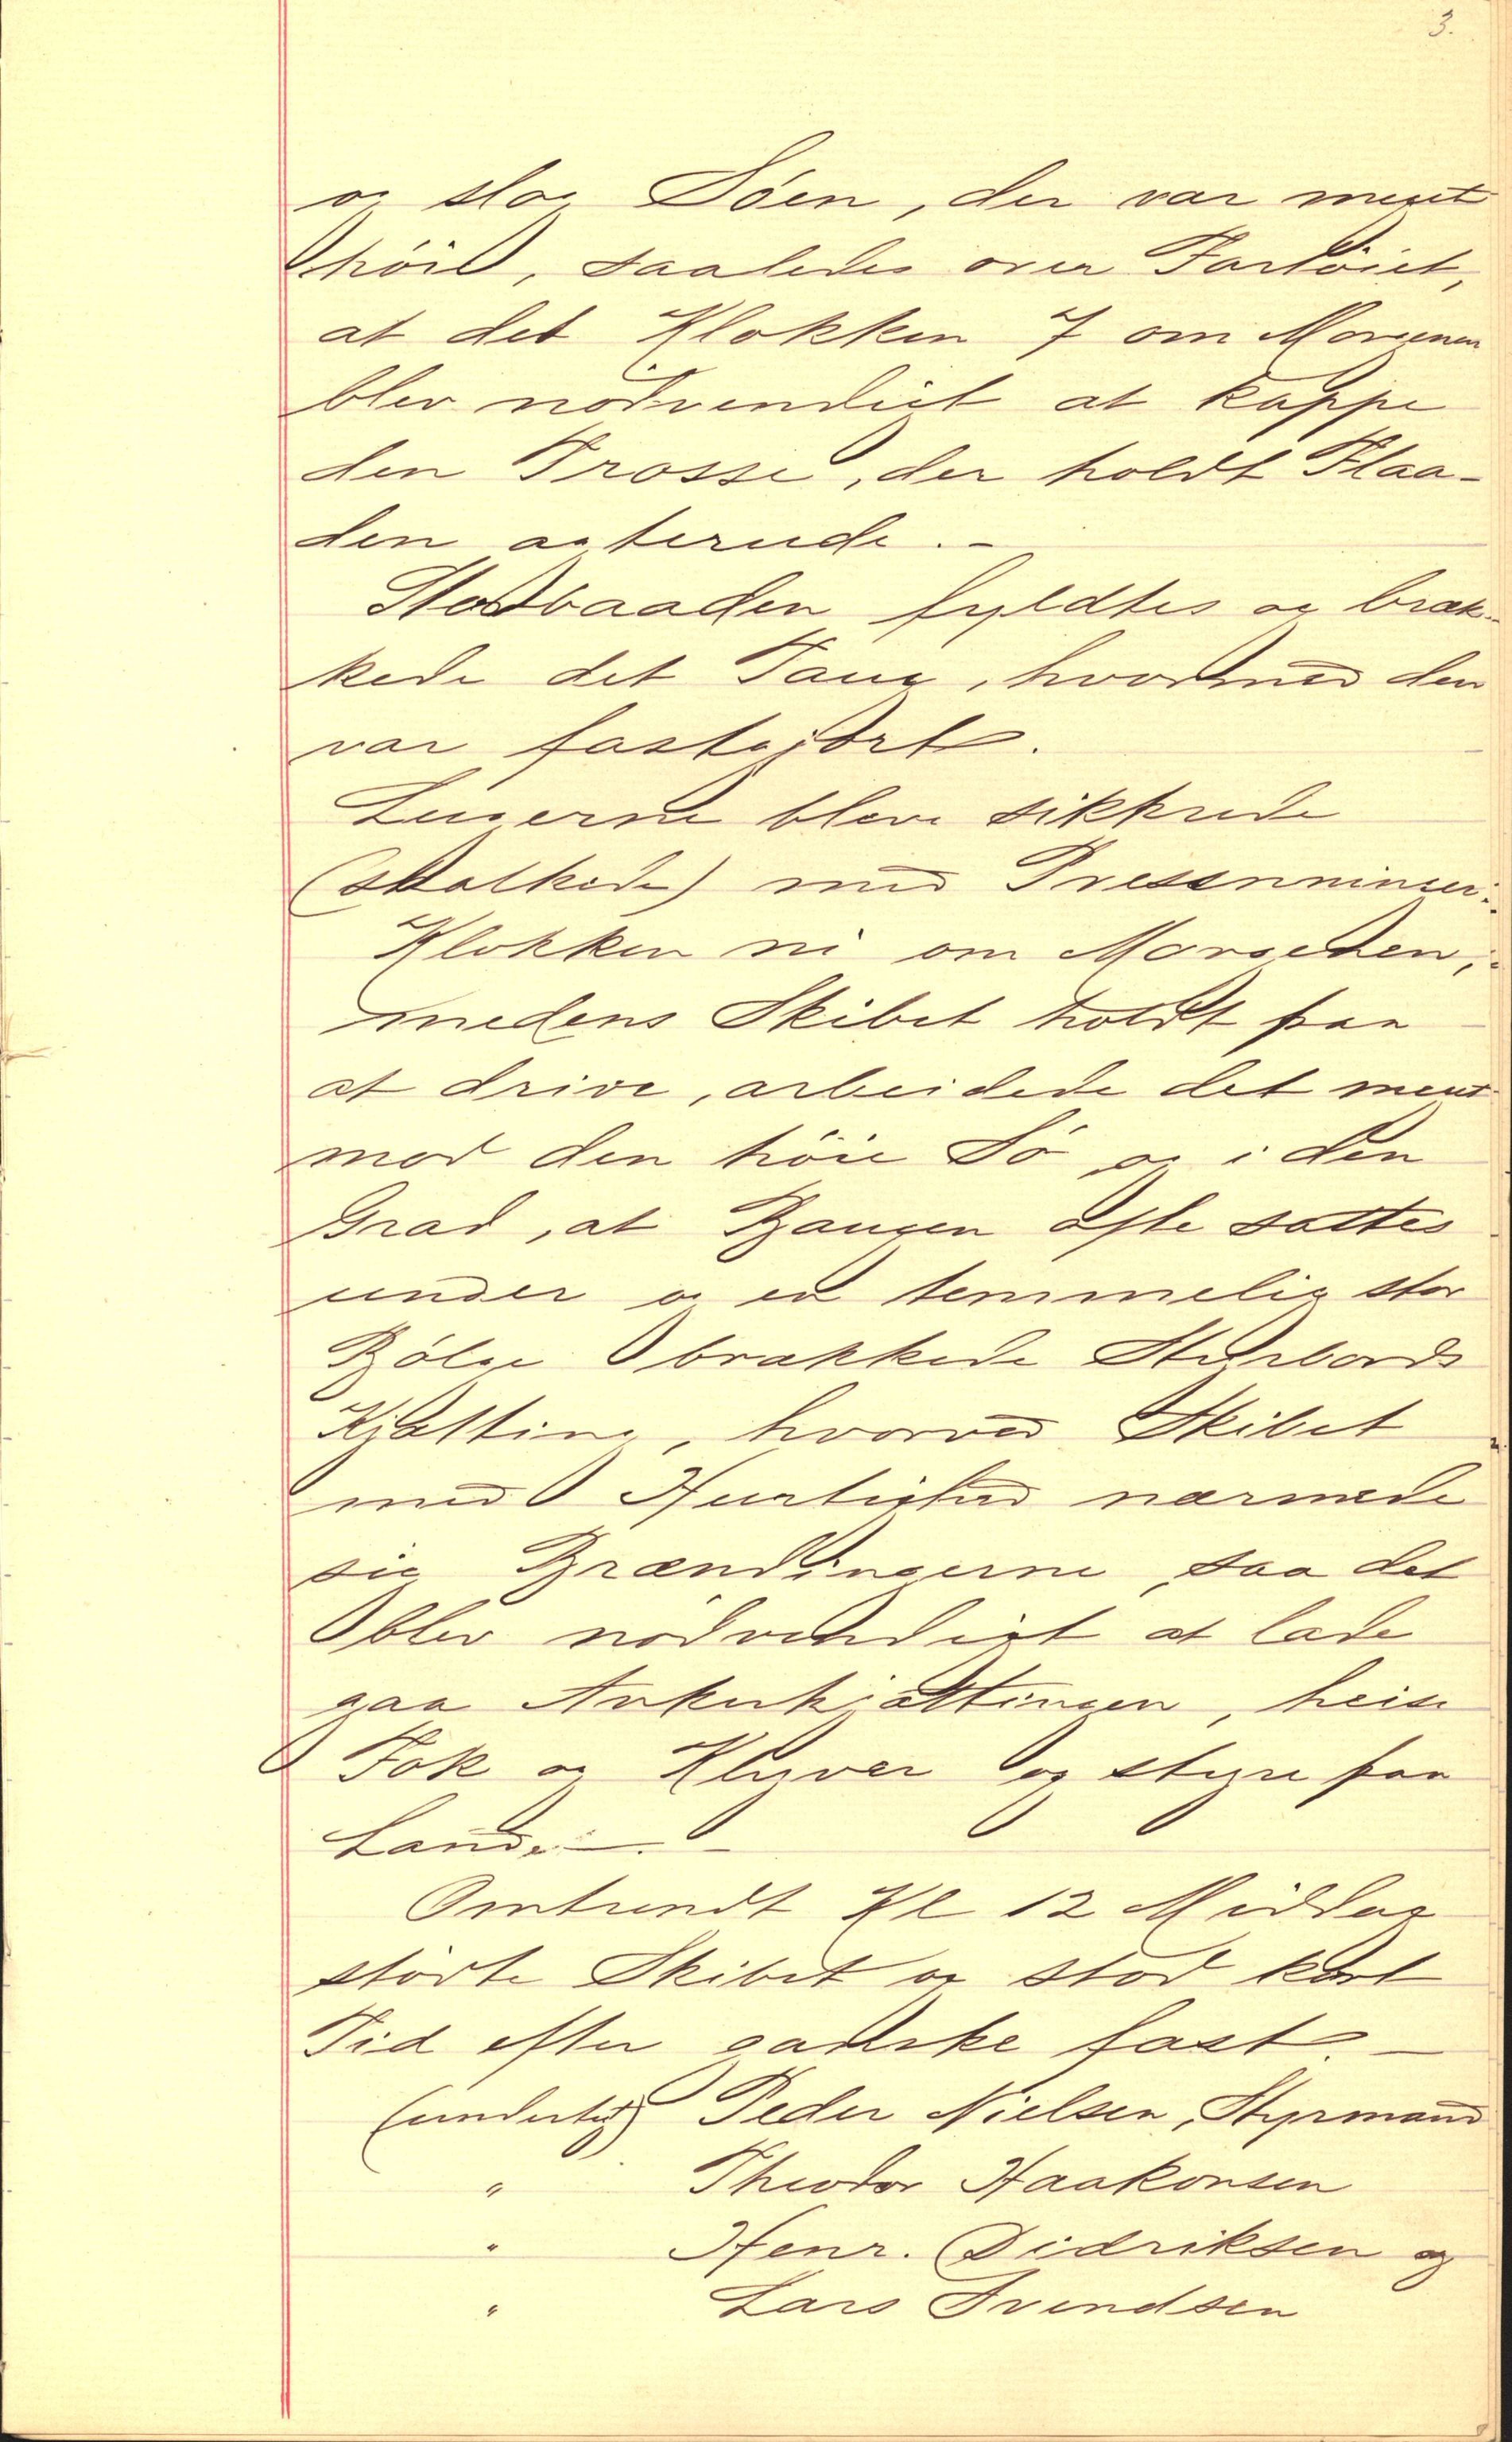 3.
og slog Söen, der var meget
höit, saaledes over Fartöiet,
at det Klokken 7 om Morgenen
blev nödvendigt at kappe
den Trosse, der holdt Flaa-
den agterude. -
Storbaaden fyldtes og bræk-
kede det Taug, hvormed den
var fastgjort.
Lugerne bleve sikkrede
(skalkede) med Presenninger.
Klokken ni om Morgenen,
medens Skibet holdt paa
at drive, arbeidede det meget
mod den höie Sö og i den
Grad, at Baugen ofte sattes
under og en temmelig stor
Bölge brækkede Styrbords
Kjætting, hvorved Skibet
med Hurtighed nærmede
sig Brændingerne, saa det
blev nödvendigt at lade
gaa Ankerkjættingen, heise
Fok og Klyver og styre paa
Land. -
Omtrendt Kl 12 Middag
stödte Skibet og stod kort
Tid efter ganske fast. -
(undertg) Peder Nielsen, Styrmand
" Theodor Haakonsen
" Henr. Didriksen og
" Lars Svendsen